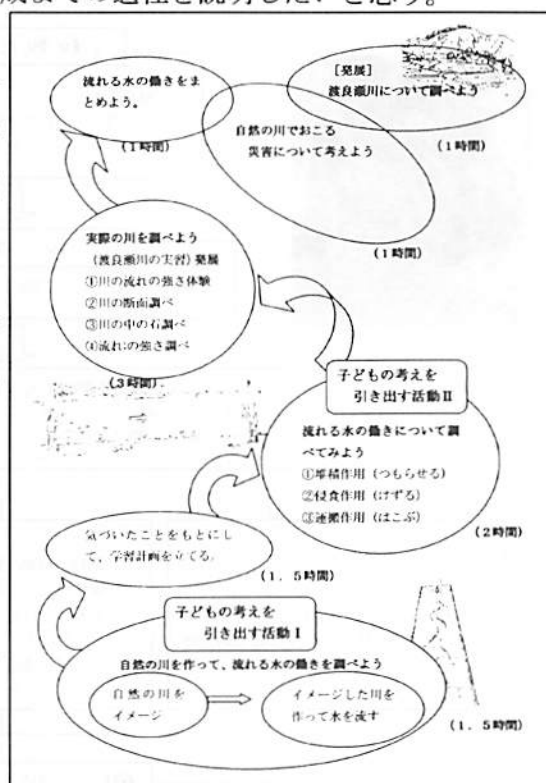 成までの過程を説明したいと思う。
流れる水の働きをま
とめよう。
(1時間)
[発展]
渡良瀬川について調べよう
(1時間)
自然の川でおこる
災害について考えよう
(1時間)
実際の川を調べよう
(渡良瀬川の実習) 発展
①川の流れの強さ体験
②川の断面調べ
③川の中の石調べ
④流れの強さ調べ
(3時間)
子どもの考えを
引き出す活動Ⅱ
流れる水の働きについて調
べてみよう
①堆積作用(つもらせる)
②侵食作用(けずる)
③運搬作用(はこぶ)
(2時間)
気づいたことをもとにし
て、学習計画を立てる。
(1.5時間)
子どもの考えを
引き出す活動Ⅰ
自然の川を作って、流れる水の働きを調べよう
自然の川を
イメージ
イメージした川を
作って水を流す
(1.5時間)